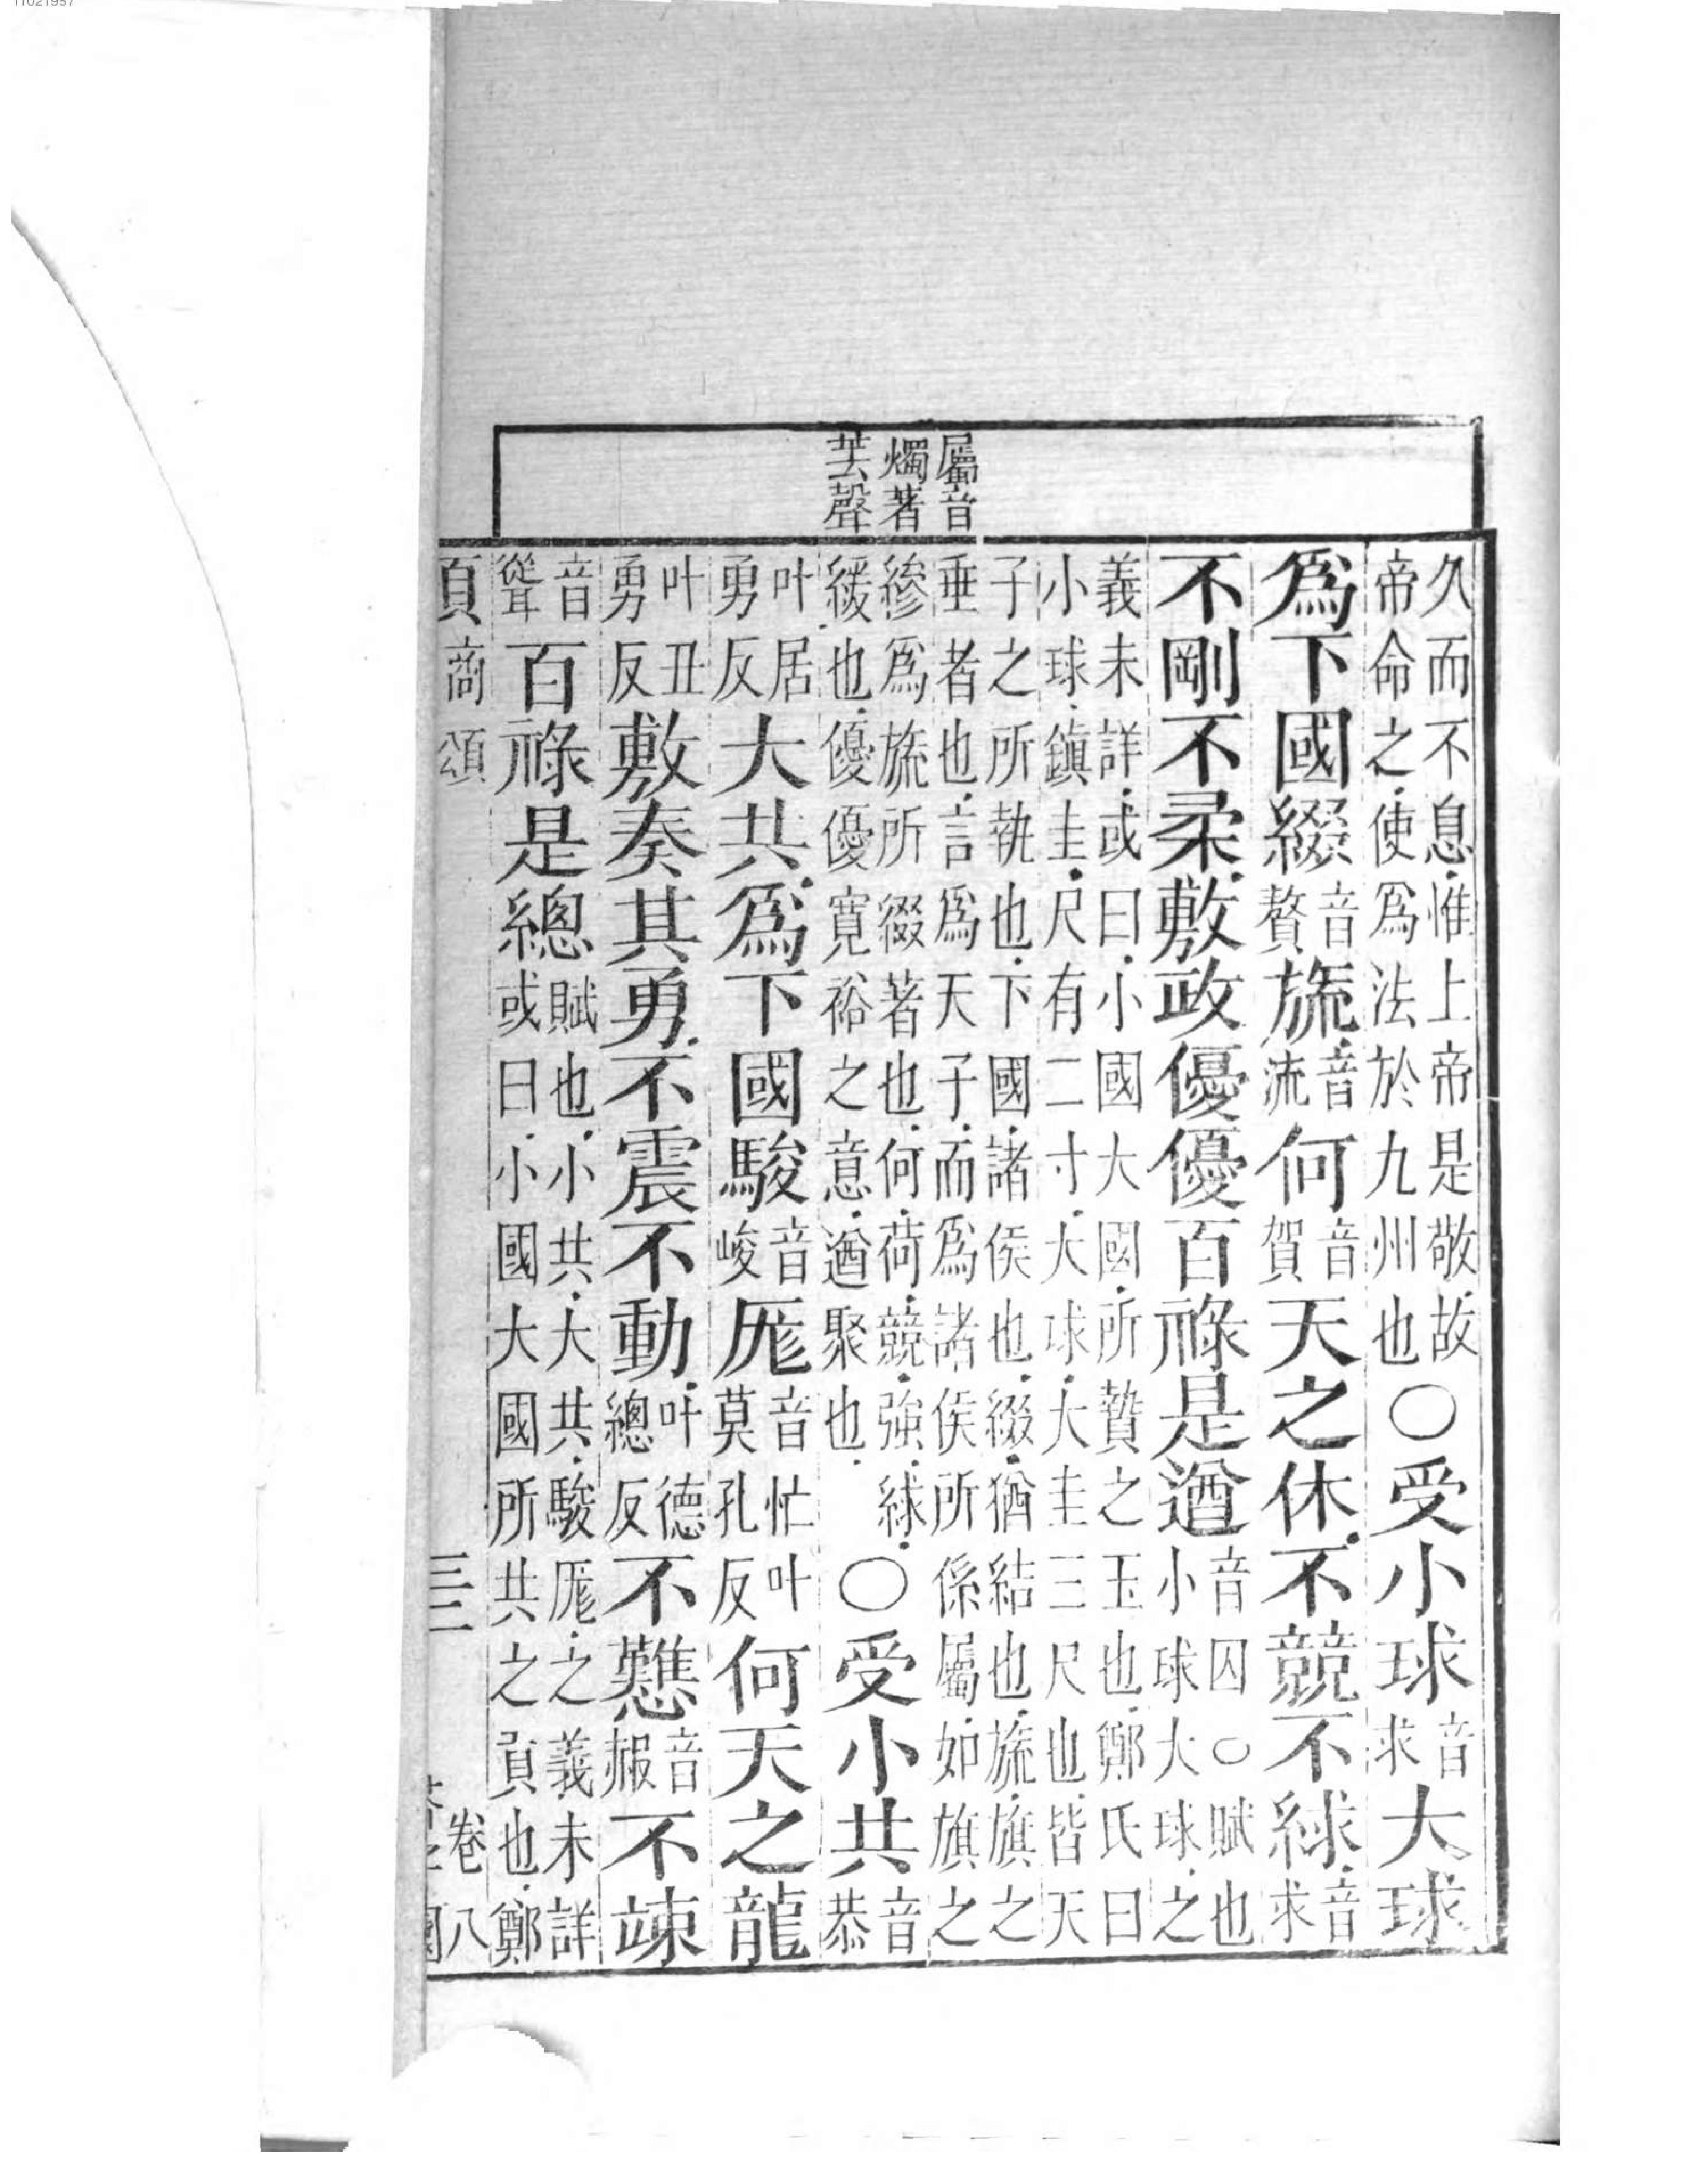 屬音
燭著
去聲
久而不息惟上帝是敬故帝命之使爲法於九州也○受小球音求大球
爲下國綴音贅旒音流何音賀天之休不競不絿音求
不剛不柔敷政優優百祿是遒音囚○賦也小球大球之
義未詳或曰小國大國所贄之玉也鄭氏曰小球鎮圭尺有二寸大球大圭三尺也皆天
子之所執也下國諸侯也綴猶結也旒旗之垂者也言爲天子而爲諸侯所係屬如旗之
縿爲旒所綴著也何荷競強絿緩也優優寬裕之意遒聚也○受小共音恭
叶居勇反大共爲下國駿音峻厖音忙叶莫孔反何天之龍
叶丑勇反敷奏其勇不震不動叶德總反不戁音赧不竦
音聳百祿是總賦也小共大共駿厖之義未詳或曰小國大國所共之貢也鄭
商頌 卷八
11021957